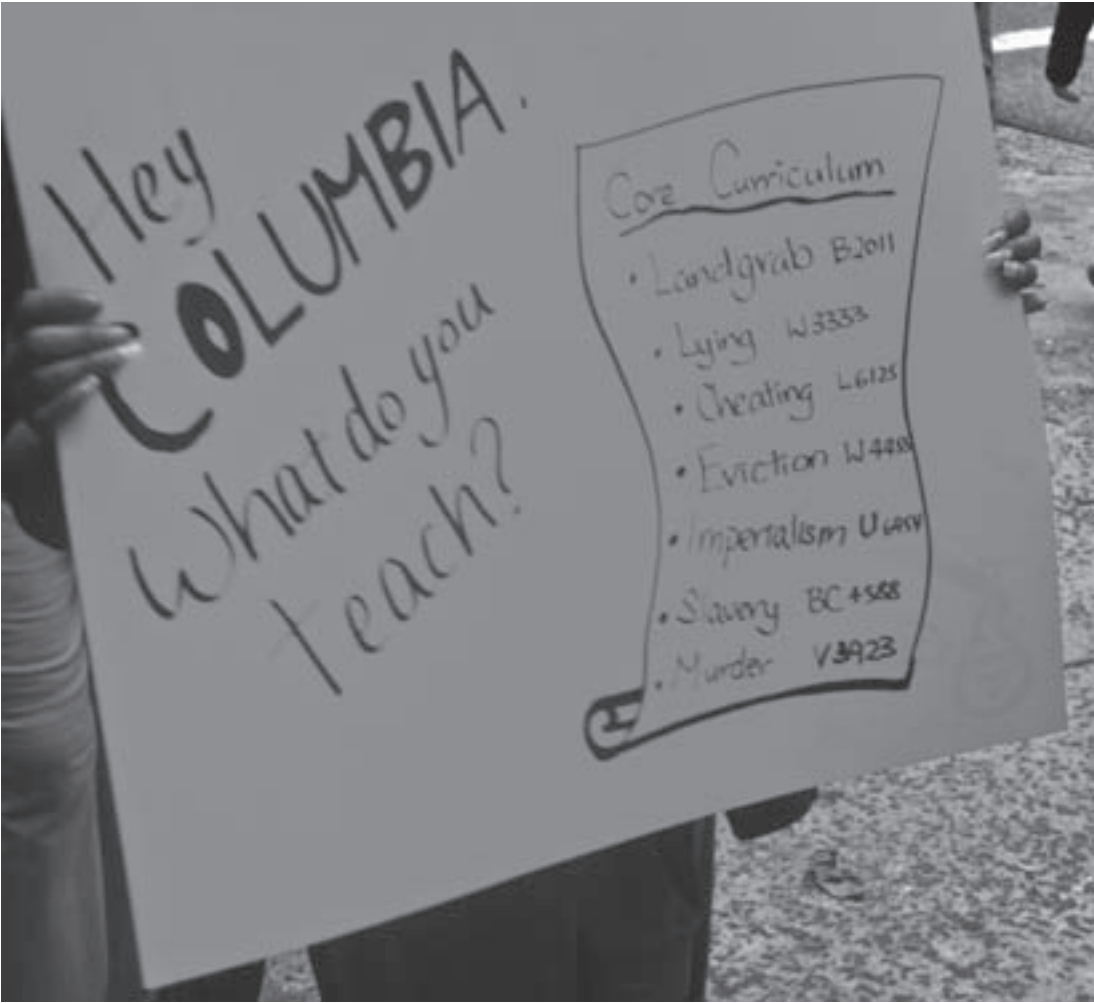 Hey
COLUMBIA.
What do you
teach?
Core Curriculum
• Landgrab B2011
• Lying W3333
• Cheating L6125
• Eviction
• Imperialism
• Slavery
• Murder